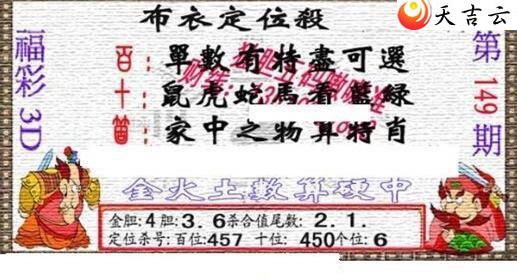 天吉云
布衣定位殺
福彩3D
第149期
百：單數有特盡可選
十：鼠虎蛇馬看藍綠
個：家中之物算特肖
金火土數算碼中
金胆:4胆:3.6杀合值尾数:2.1.
定位杀号:百位:457 十位:450个位:6